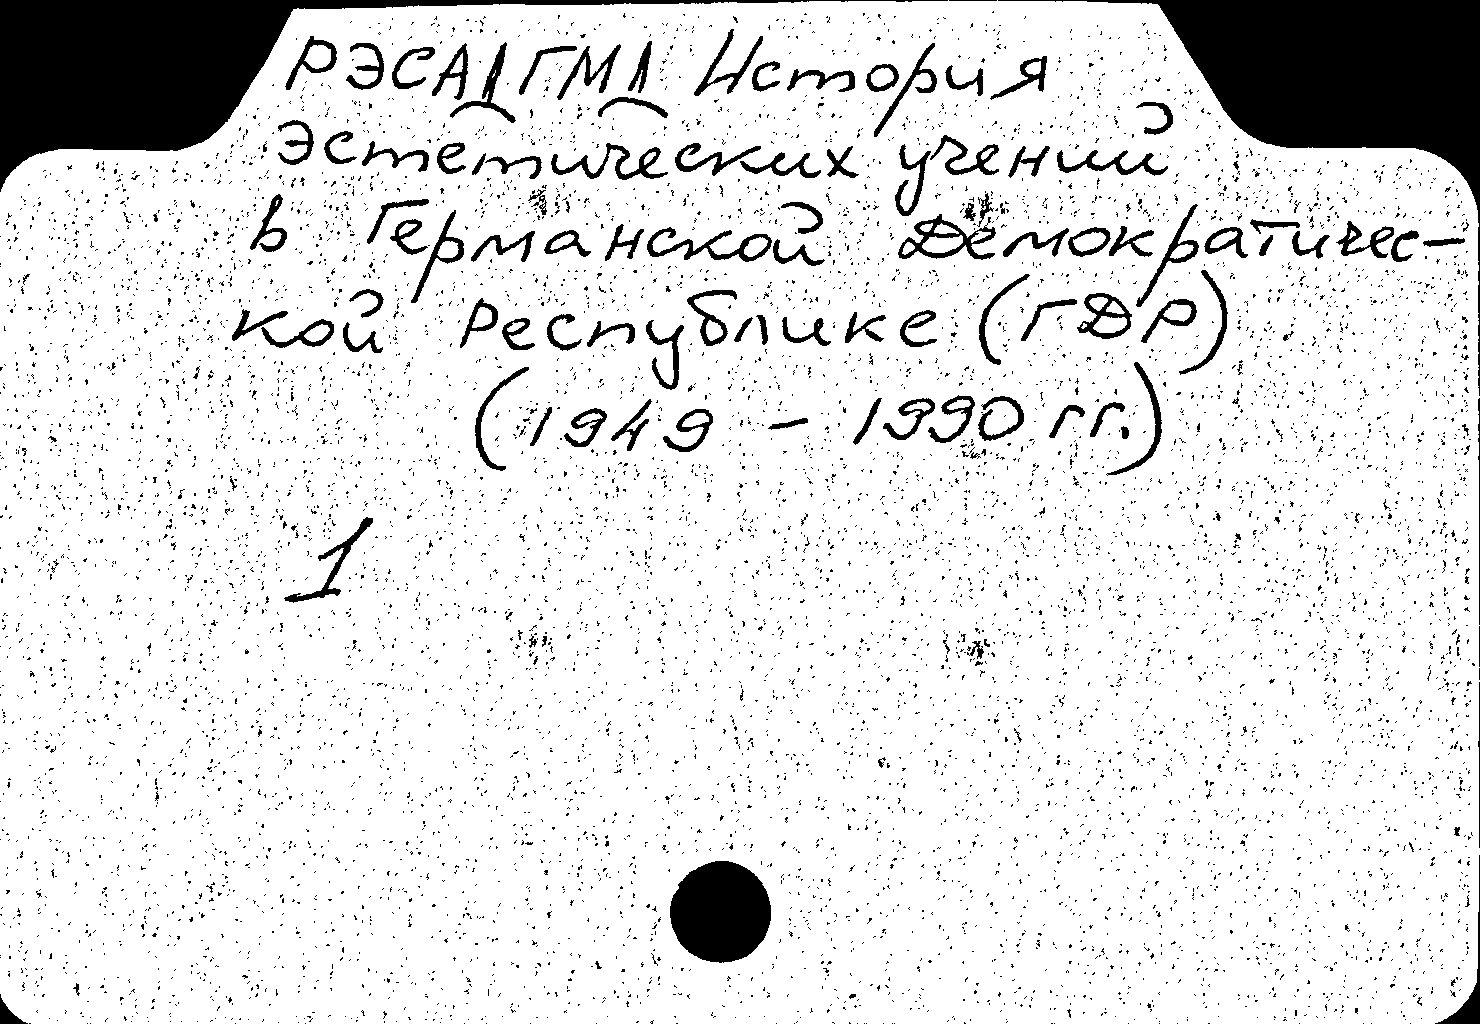 РЭСА(ГМ) История
эстетических учений
в Германской Демократичес-
кой Республике (ГДР)
(1949 - 1990 гг.)
1